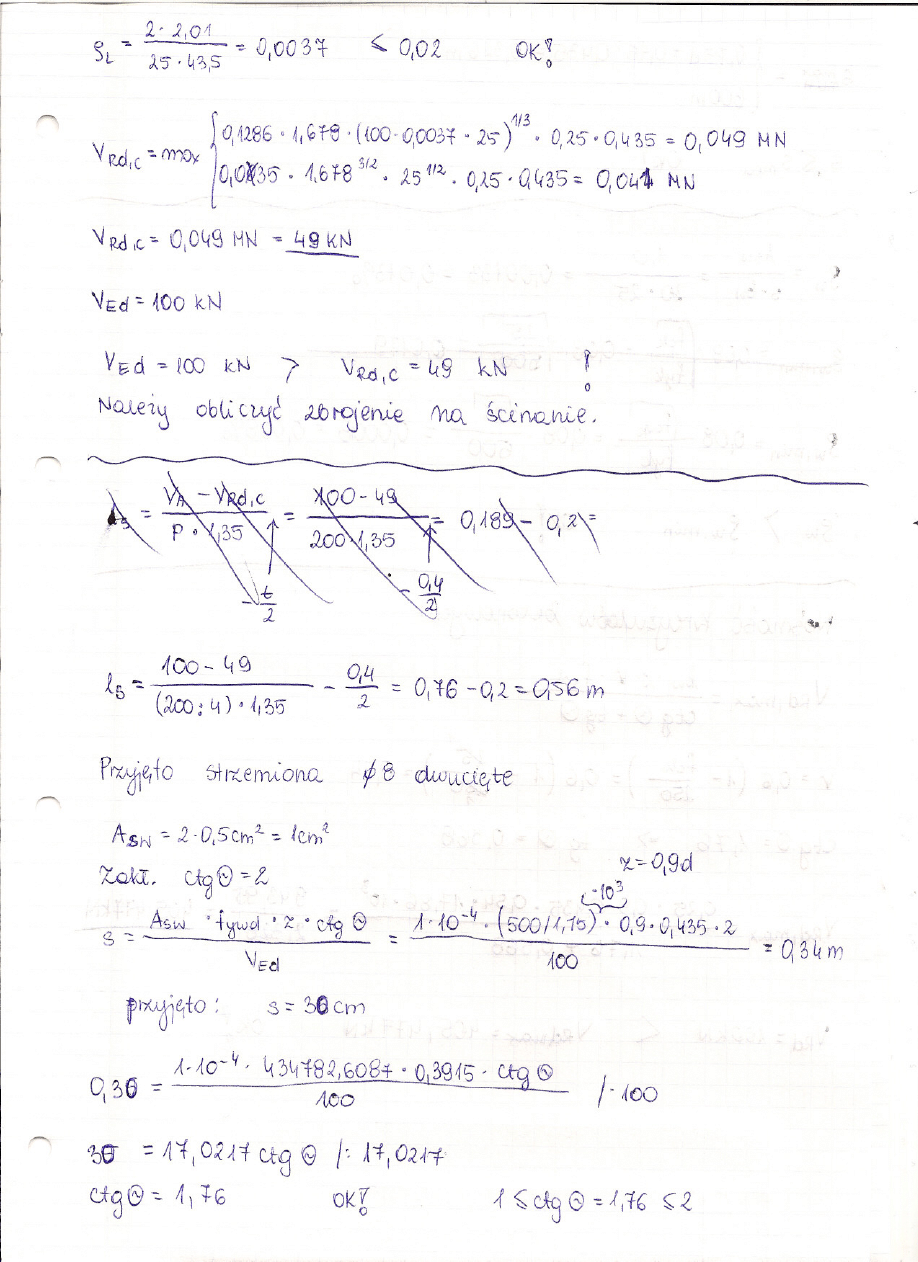 ρL = 2·2,01 / 25·43,5 = 0,0037 ≤ 0,02 OK!
VRd,c = max { 0,1286 · 1,678 · (100·0,0037·25)^1/3 · 0,25 · 0,435 = 0,049 MN
0,0135 · 1,678^3/2 · 25^1/2 · 0,25 · 0,435 = 0,041 MN
VRd,c = 0,049 MN = 49 KN
VEd = 100 KN
VEd = 100 KN > VRd,c = 49 KN !
Należy obliczyć zbrojenie na ścinanie.
ls = VA - VRd,c / P · 1,35 = 100 - 49 / 200·1,35 = 0,189 - 0,2 =
- t/2 - 0,4/2
ls = 100 - 49 / (200:4)·1,35 - 0,4/2 = 0,76 - 0,2 = 0,56 m
Przyjęto strzemiona ϕ8 dwucięte
ASW = 2·0,5cm² = 1cm²
z=0,9d
Zakł. ctgΘ = 2
·10³
s = ASW · fywd · z · ctgΘ / VEd = 1·10⁻⁴ · (500/1,15) · 0,9·0,435·2 / 100 = 0,34 m
przyjęto: s = 30 cm
0,30 = 1·10⁻⁴ · 434782,6087 · 0,3915 · ctgΘ / 100 /·100
30 = 17,0217 ctgΘ /: 17,0217
ctgΘ = 1,76 OK! 1 ≤ ctgΘ = 1,76 ≤ 2